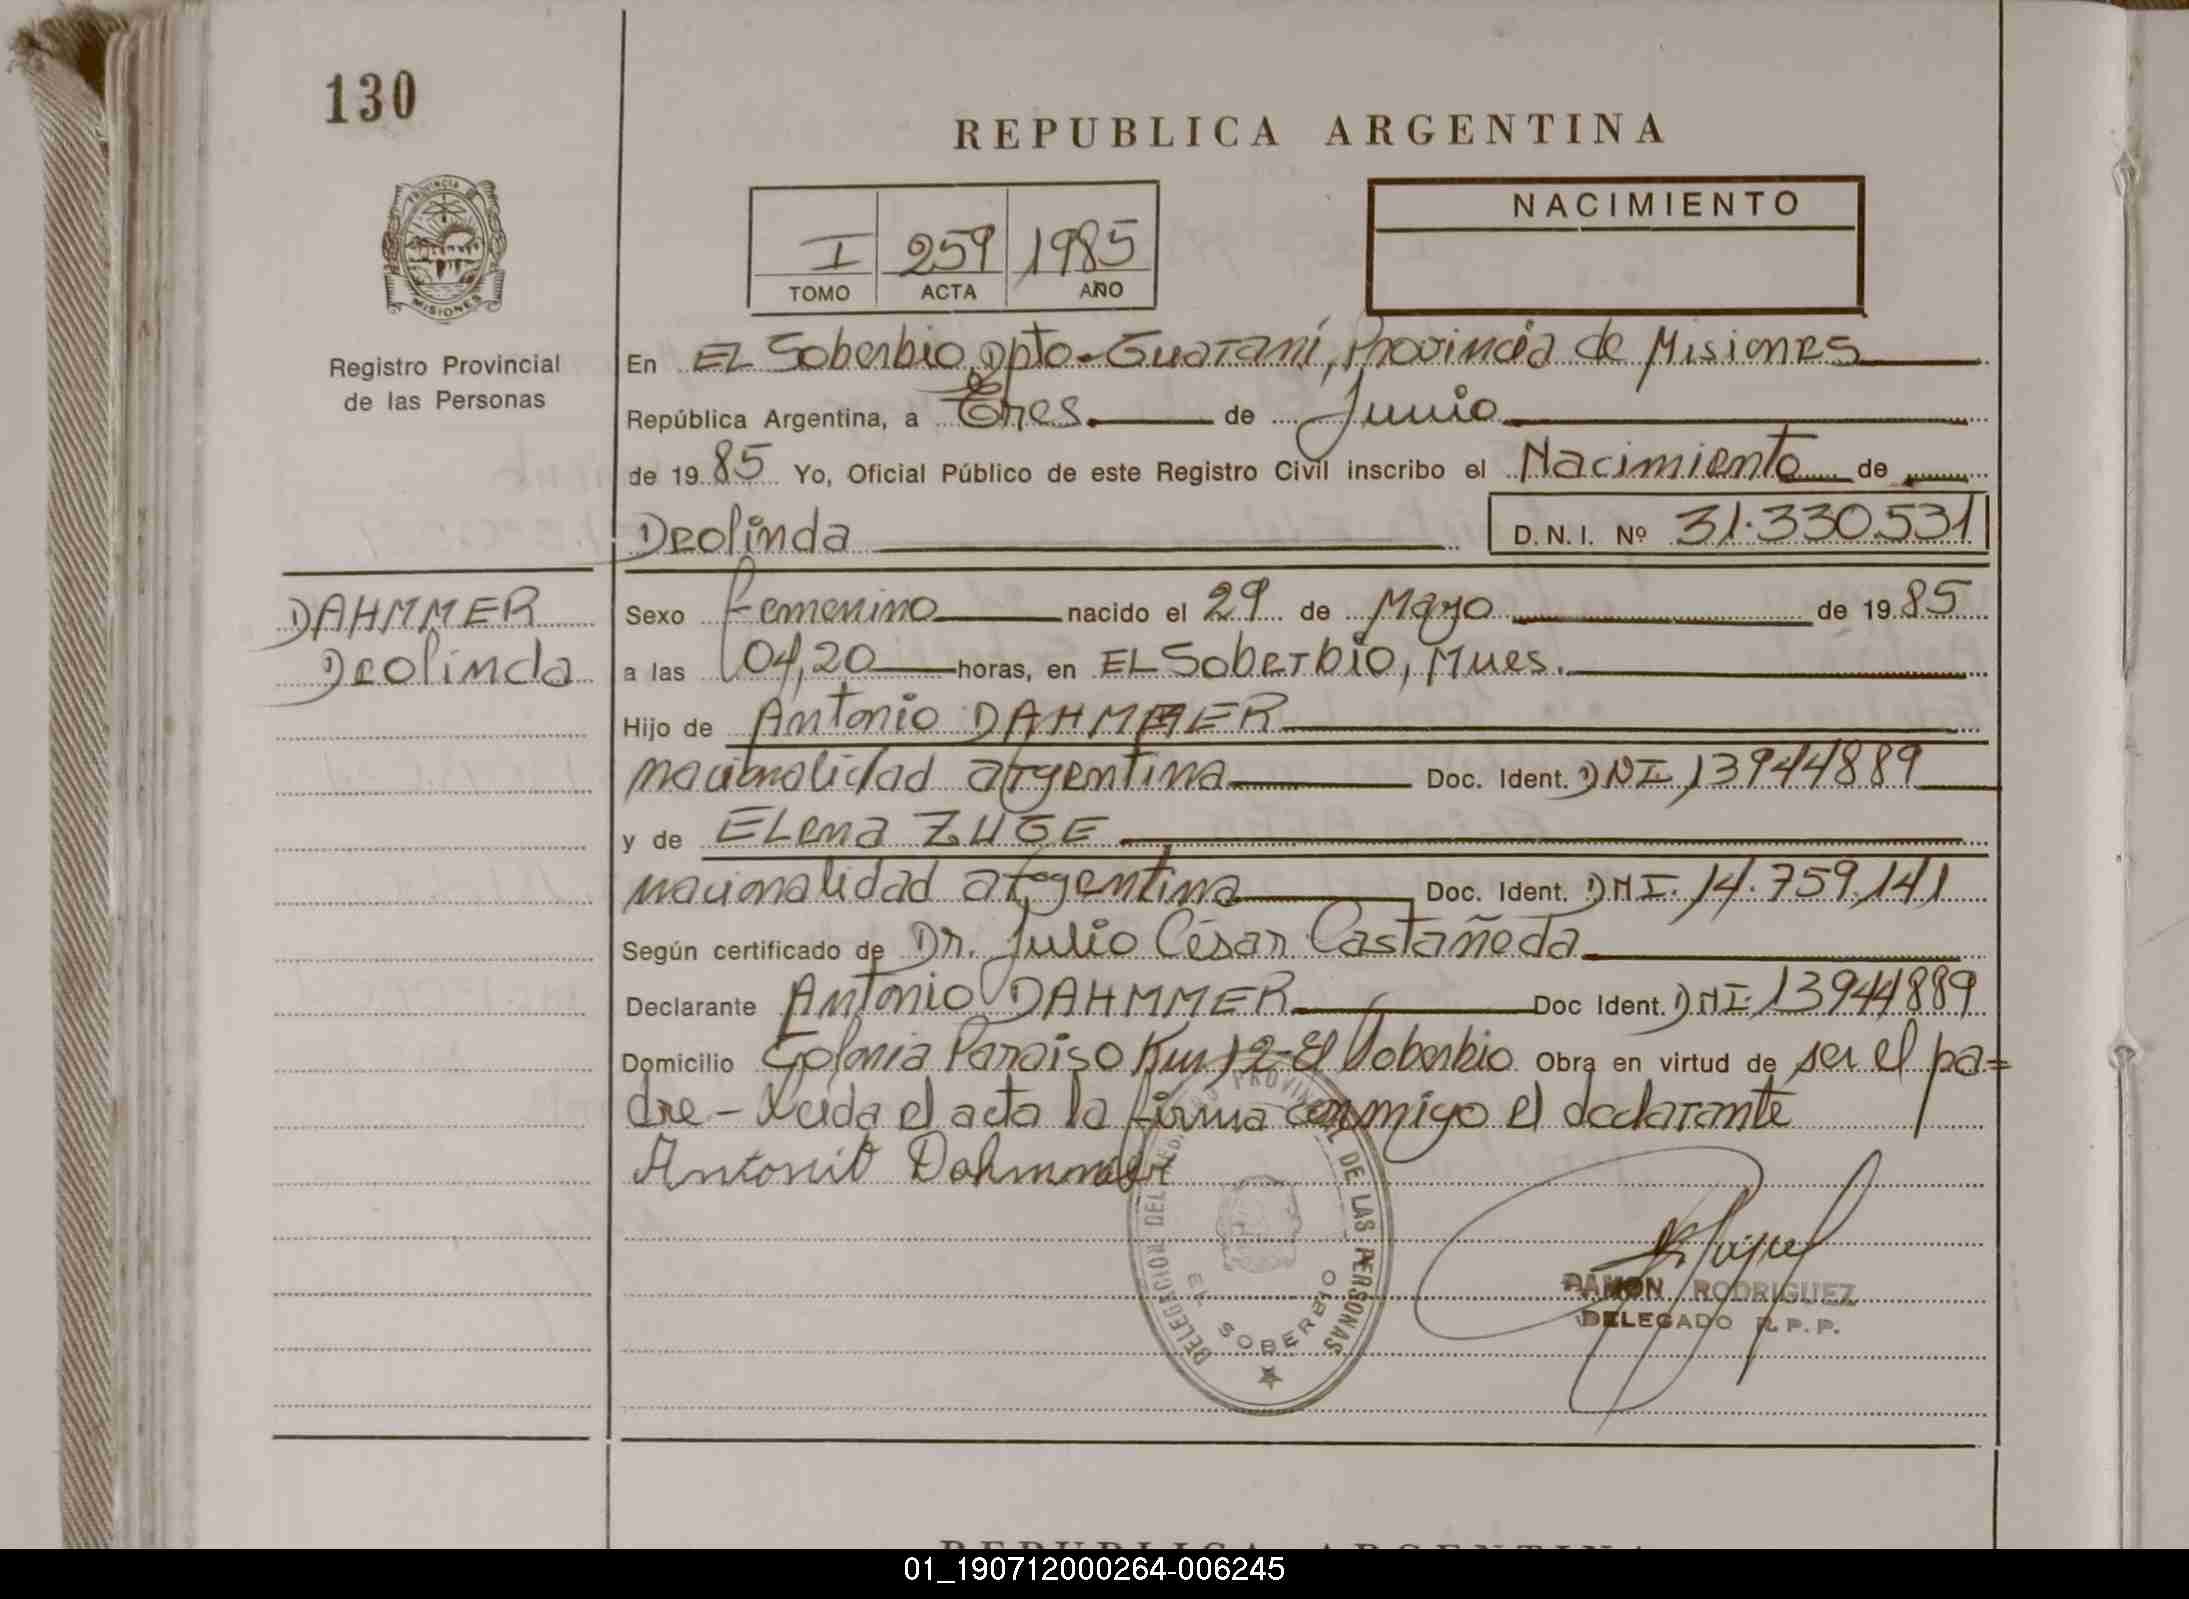 130
REPUBLICA ARGENTINA
PROVINCIA DE
MISIONES
I 259 1985
TOMO ACTA AÑO
NACIMIENTO
Registro Provincial
de las Personas
En EL Soberbio, Dpto-Guaraní, Provincia de Misiones
República Argentina, a Tres de Junio
de 1985 Yo, Oficial Público de este Registro Civil inscribo el Nacimiento de
Deolinda D.N.I. Nº 31.330.531
DAHMMER
Deolinda
Sexo Femenino nacido el 29 de Mayo de 1985
a las 04,20 horas, en EL Soberbio, Mnes.
Hijo de Antonio DAHMMER
nacionalidad argentina Doc. Ident. DNI. 13944889
y de ELena ZUGE
nacionalidad argentina Doc. Ident. DNI. 14.759.141
Según certificado de Dr. Julio César Castañeda
Declarante Antonio DAHMMER Doc Ident. DNI. 13944889
Domicilio Colonia Paraiso Km 12-El Soberbio Obra en virtud de ser el pa=
dre - Leida el acta la firma conmigo el declarante
Antonio Dahmmer
DELEGACION DEL REG. PROVINCIAL DE LAS PERSONAS
EL SOBERBIO
RAMON RODRIGUEZ
DELEGADO R.P.P.
01_190712000264-006245